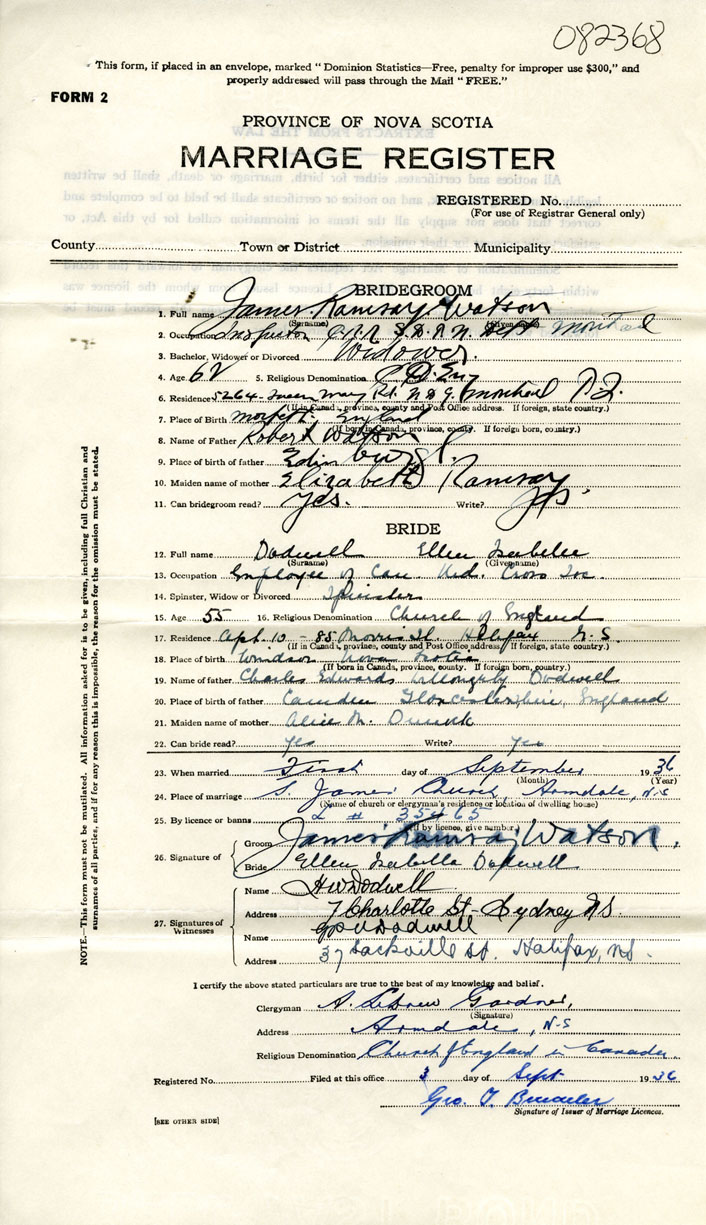 082368
This form, if placed in an envelope, marked "Dominion Statistics—Free, penalty for improper use $300," and
properly addressed will pass through the Mail "FREE."
FORM 2
PROVINCE OF NOVA SCOTIA
MARRIAGE REGISTER
REGISTERED No.
(For use of Registrar General only)
County Town or District Municipality
BRIDEGROOM
1. Full name James Ramsay Watson
(Surname) (Given name)
2. Occupation Inspector C.P.R. Dept Montreal
3. Bachelor, Widower or Divorced Widower.
4. Age 62 5. Religious Denomination C of Eng
6. Residence 5264 Queen Mary Rd. N D G. Montreal P.Q.
(If in Canada, province, county and Post Office address. If foreign, state country.)
7. Place of Birth Morpeth, England
(If born in Canada, province, county. If foreign born, country.)
8. Name of Father Robert Watson
9. Place of birth of father Edinburgh.
10. Maiden name of mother Elizabeth Ramsay
11. Can bridegroom read? yes. Write? yes.
BRIDE
12. Full name Dodwell Ellen Isabelle
(Surname) (Given name)
13. Occupation Employee of Can. Red. Cross Soc.
14. Spinster, Widow or Divorced Spinster
15. Age 55 16. Religious Denomination Church of England
17. Residence Apt. 10 - 85 Morris St. Halifax N.S.
(If in Canada, province, county and Post Office address. If foreign, state country.)
18. Place of birth Windsor Nova Scotia
(If born in Canada, province, county. If foreign born, country.)
19. Name of father Charles Edward Willoughby Dodwell
20. Place of birth of father Gloucestershire, England
21. Maiden name of mother Alice M.
22. Can bride read? yes Write? yes
23. When married First day of September 1936
(Month) (Year)
24. Place of marriage S. James Church, Armdale, N.S
(Name of church or clergyman's residence or location of dwelling house)
25. By licence or banns L # 35465
(If by licence, give number.)
26. Signature of Groom James Ramsay Watson.
Bride Ellen Isabella Dodwell
27. Signatures of Witnesses
Name H W Dodwell
Address 7 Charlotte St - Sydney NS.
Name Dodwell
Address 37 Sackville St. Halifax, N.S.
I certify the above stated particulars are true to the best of my knowledge and belief.
Clergyman A. Gardner,
(Signature)
Address Armdale, N-S
Religious Denomination Church of England in Canada.
Registered No. Filed at this office 3 day of Sept 1936
Geo. T.
Signature of Issuer of Marriage Licences.
[SEE OTHER SIDE]
NOTE.—This form must not be mutilated. All information asked for is to be given, including full Christian and
surnames of all parties, and if for any reason this is impossible, the reason for the omission must be stated.